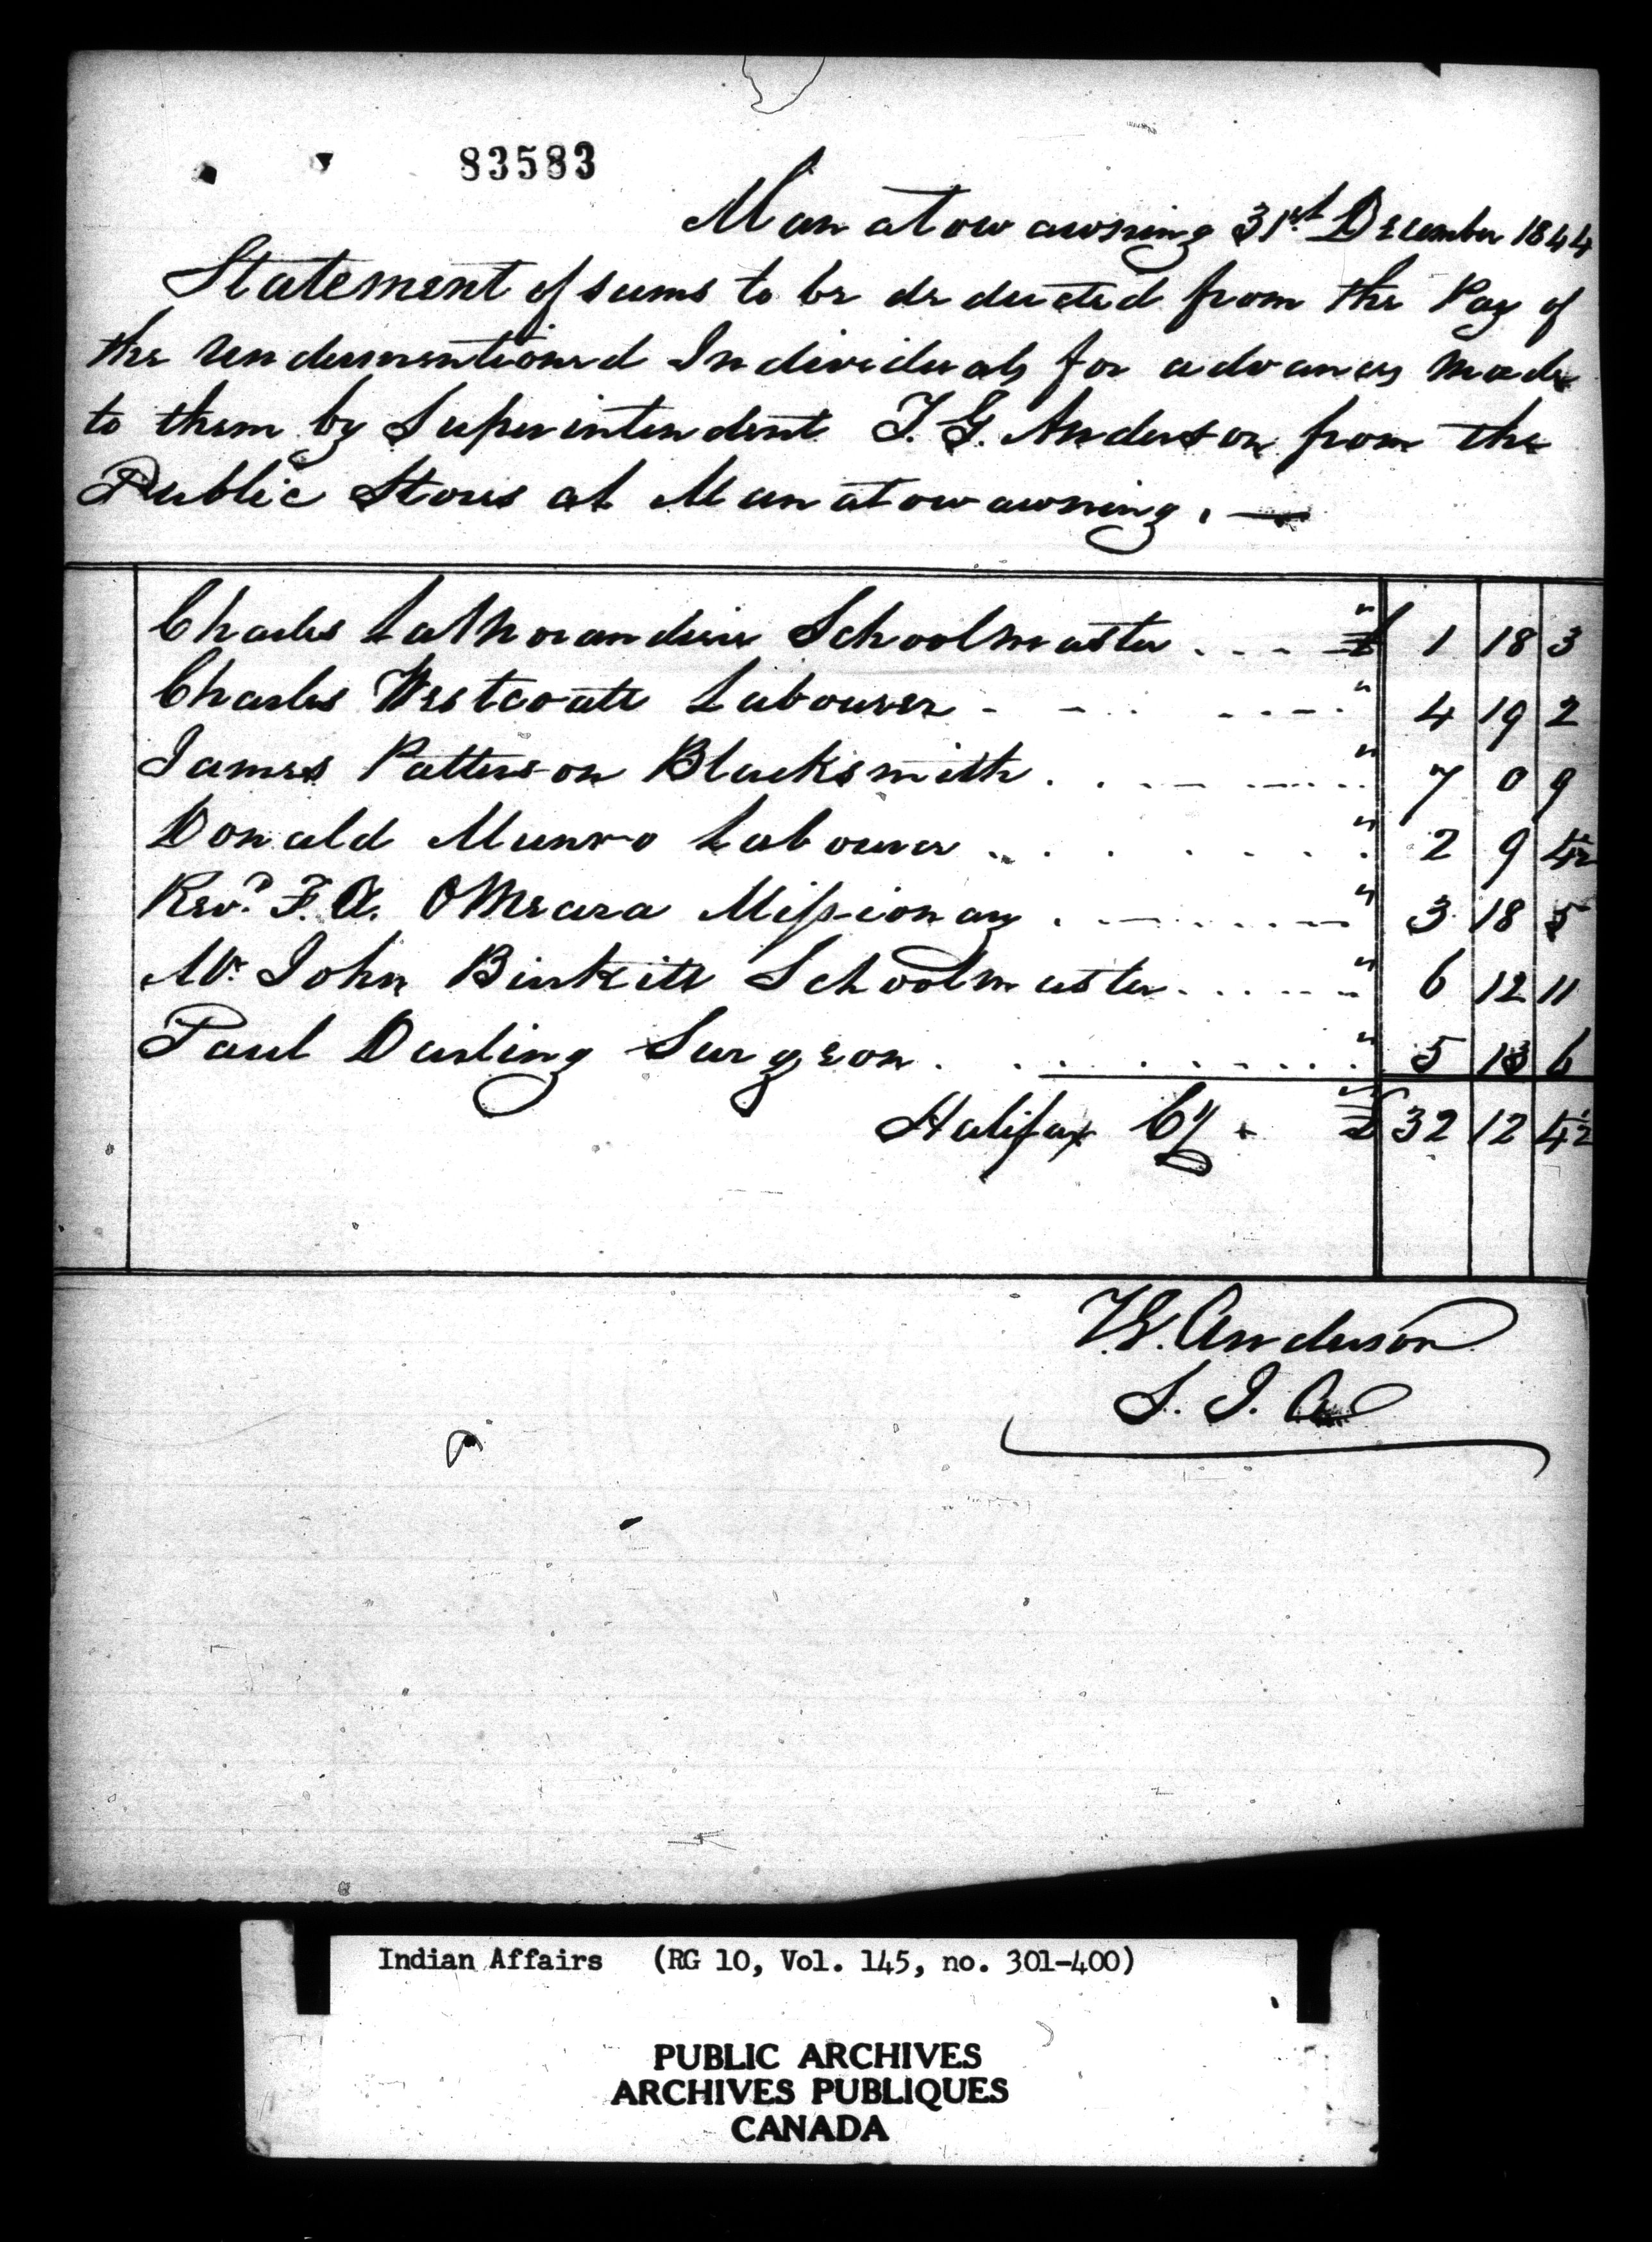 83583
Manatowawning 31st December 1844
Statement of sums to be deducted from the Pay of
the undermentioned Individuals for advances made
to them by Superintendent T. G. Anderson from the
Public Stores at Manatowawning. —
Charles LaMorandiere Schoolmaster . . . - £ 1 18 3
Charles Westcoate Labourer - - . . . - - . " 4 19 2
James Patterson Blacksmith . . . - . . . " 7 0 9
Donald Munro Labourer . . . . . . . . " 2 9 4½
Revd. F. A. OMeara Missionary . - . . . . - " 3 18 5
Mr. John Burkitt Schoolmaster . . . . - - " 6 12 11
Paul Darling Surgeon . . . . . . . . . " 5 13 6
Halifax Cy £ 32 12 4½
T. G. Anderson
S. I. A
Indian Affairs (RG 10, Vol. 145, no. 301-400)
PUBLIC ARCHIVES
ARCHIVES PUBLIQUES
CANADA